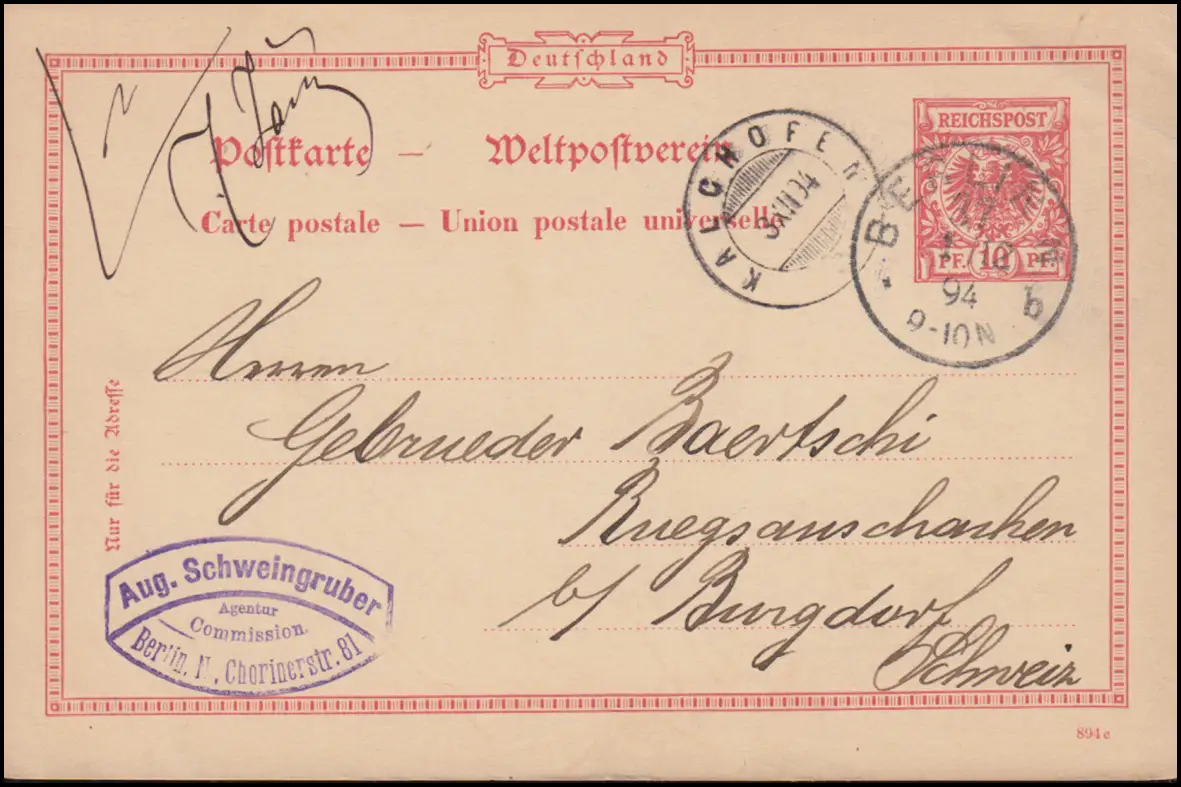 Deutschland
REICHSPOST
Postkarte — Weltpostverein
Carte postale — Union postale universelle
PF. 10 PF.
KALCHOFEN
3.XII.94
BERLIN
94
9-10N
b
Herren
Gebrueder Baertschi
Ruegsauschachen
b/ Burgdorf
Schweiz
Nur für die Adresse
Aug. Schweingruber
Agentur
Commission.
Berlin, N., Chorinerstr. 81
894e